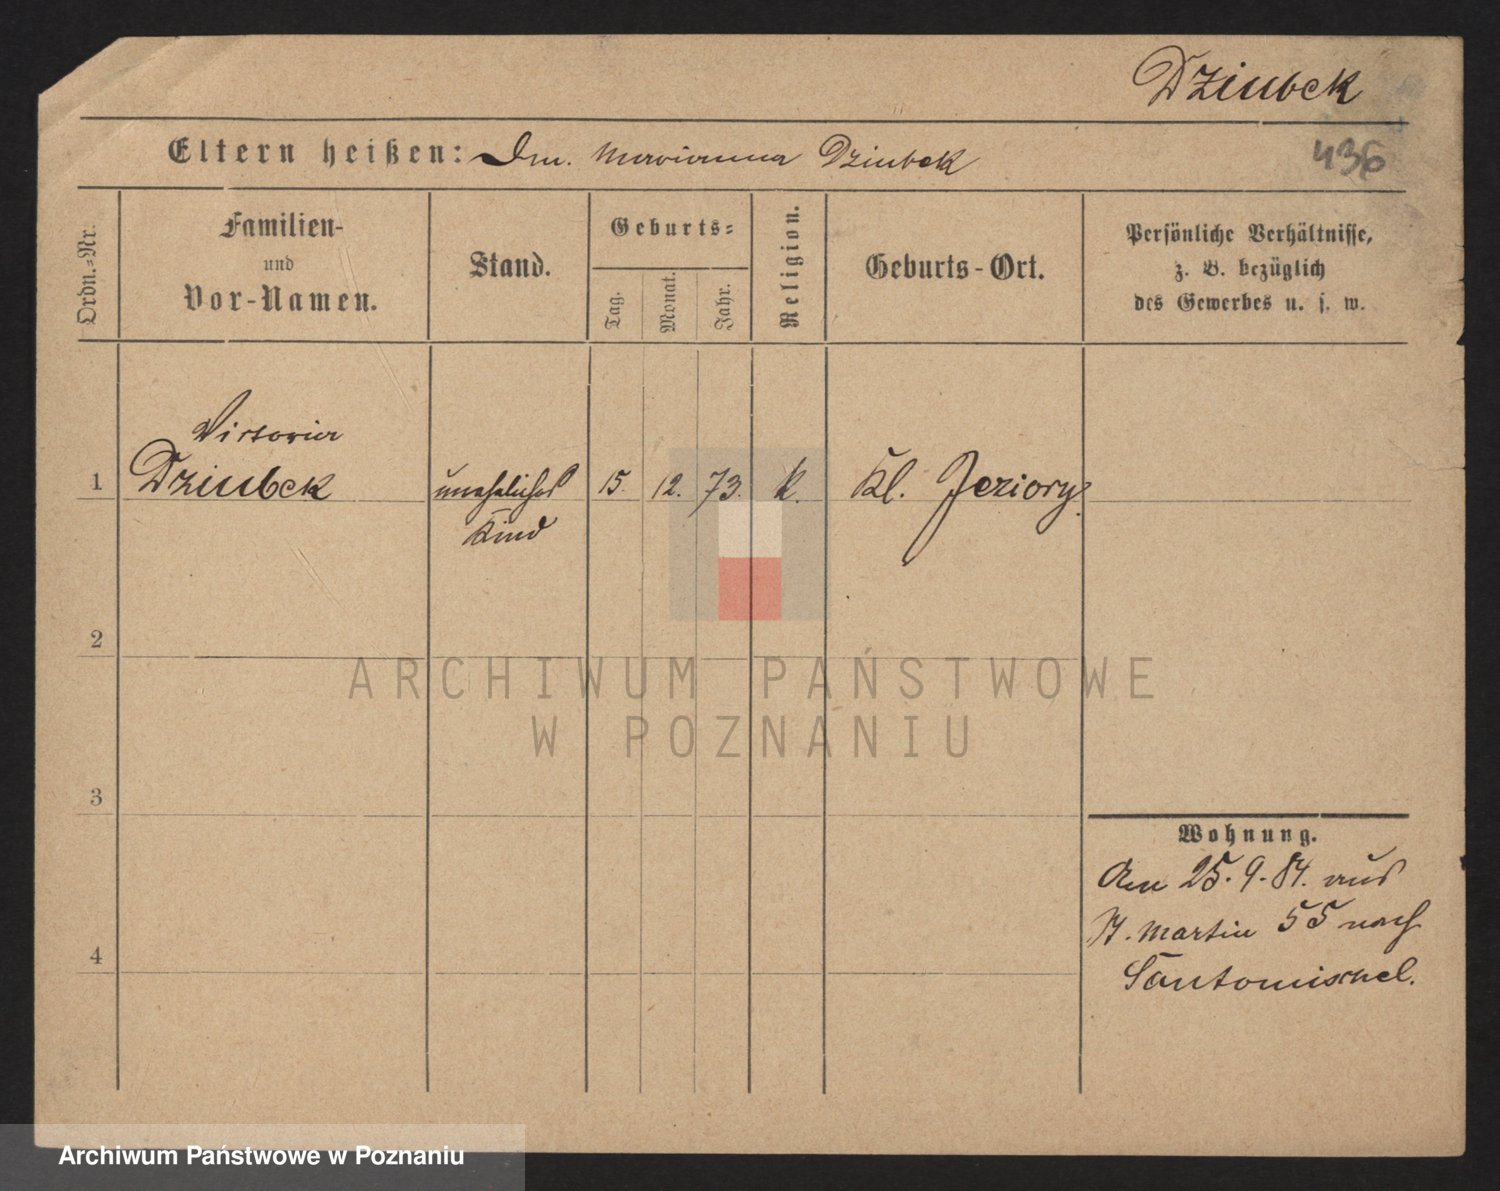 Dziubek
436
Eltern heißen: Dm. Marianna Dziubek
Ordn.-Nr.
Familien-
und
Vor-Namen.
Stand.
Geburts-
Tag.
Monat.
Jahr.
Religion.
Geburts-Ort.
Persönliche Verhältnisse,
z. B. bezüglich
des Gewerbes u. s. w.
1
Victoria
Dziubek
uneheliches
Kind
15.
12.
73.
k.
Kl. Jeziory.
2
3
4
Wohnung.
Am 25.9.84. aus
St. Martin 55 nach
Santomischel.
ARCHIWUM PAŃSTWOWE
W POZNANIU
Archiwum Państwowe w Poznaniu